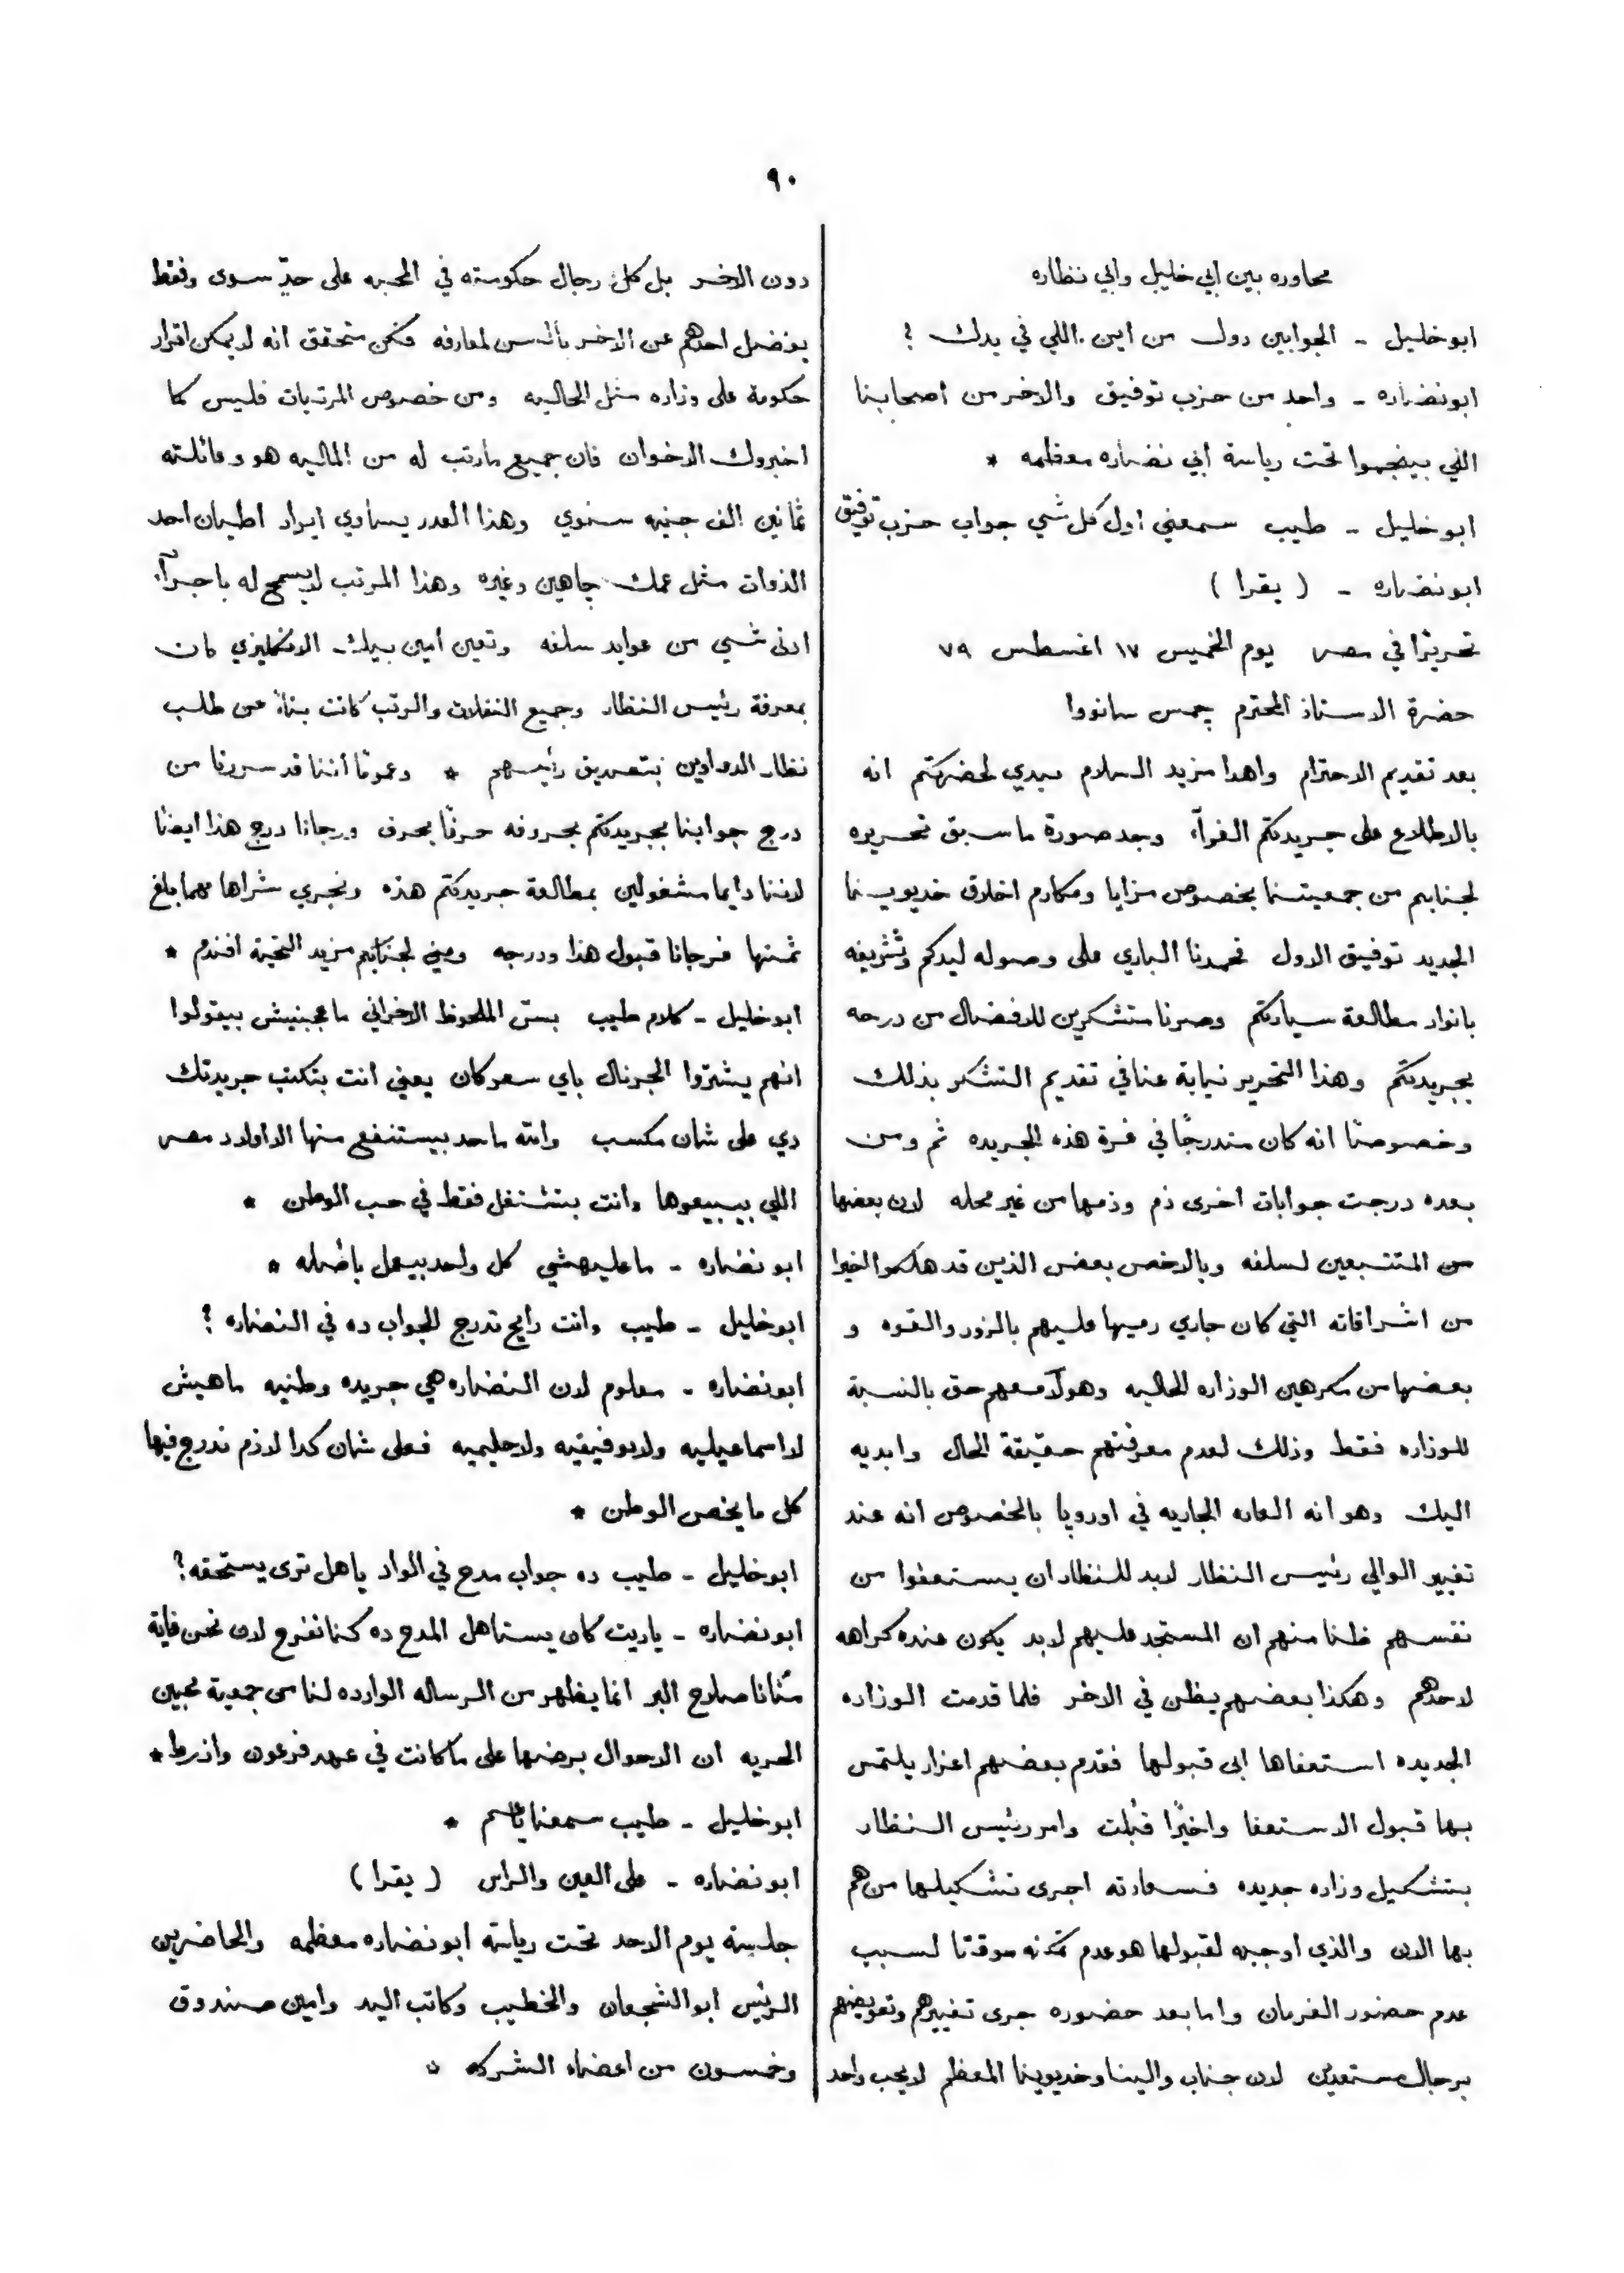 ٩٠
محاوره بين ابي خليل وابي نظاره
ابو خليل - الجوابين دول من اين اللي في يدك ؟
ابو نضاره - واحد من حزب توفيق والاخر من اصحابنا
اللي بيجتمعوا تحت رياسة ابي نضاره معظمه *
ابو خليل - طيب سمعني اول كل شي جواب حزب توفيق
ابو نضاره - ( يقرا )
تحريرًا في مصر يوم الخميس ١٧ اغسطس ٧٩
حضرة الاستاذ المحترم چمس سانووا
بعد تقديم الاحترام واهدا مزيد السلام نبدي لحضرتكم انه
بالاطلاع على جريدتكم الغرآء وجد صورة ما سبق تحريره
لجنابكم من جمعيتنا بخصوص مزايا ومكارم اخلاق خديوينا
الجديد توفيق الاول فحمدنا الباري على وصوله ليدكم وتشريفه
بانوار مطالعة سيادتكم وصرنا متشكرين للافضال من درجه
بجريدتكم وهذا التحرير نيابة عنا في تقديم التشكر بذلك
وخصوصًا انه كان مندرجًا في غرة هذه الجريده ثم ومن
بعده درجت جوابات اخرى ذم وذمها من غير محله لان بعضها
من المتتبعين لسلفه وبالاخص بعض الذين قد هلكوا الخيرا
من اشراقاته التي كان جاري رميها عليهم بالزور والقوه و
بعضها من مكرهين الوزاره الحاليه وهولآ معهم حق بالنسبة
للوزاره فقط وذلك لعدم معرفتهم حقيقة الحال وابديه
اليك وهو انه العاده الجاريه في اوروپا بالخصوص انه عند
تغيير الوالي رئيس النظار لابد للنظار ان يستعفوا من
نفسهم ظنا منهم ان المستجد عليهم لابد يكون عنده كراهه
لاحدهم وهكذا بعضهم يظن في الاخر فلما قدمت الوزاره
الجديده استعفاها ابى قبولها فقدم بعضهم اعذار يلتمس
بها قبول الاستعفا واخيرًا قُبلت وامر رئيس النظار
بتشكيل وزاره جديده فسعادته اجرى تشكيلها من هم
بها الان والذي اوجبه لقبولها هو عدم تمكنه موقتا لسبب
عدم حضور الفرمان واما بعد حضوره جرى تغييرهم وتعويضهم
برجال مستعدين لان جناب والينا وخديوينا المعظم لا يحب واحد
دون الاخر بل كل رجال حكومته في المحبه على حدٍّ سوى وفقط
يفضل احدهم عن الاخر بالسن لمعارفه فكن متحقق انه لا يمكن اقرار
حكومة على وزاره مثل الحاليه ومن خصوص المرتبات فليس كما
اخبروك الاخوان فان جميع ما رتب له من الماليه هو وعائلته
ثمانين الف جنيه سنوي وهذا القدر يساوي ايراد اطيان احد
الذوات مثل عمك چاهين وغيره وهذا المرتب لا يسمح له باجرآء
ادنى شي من عوايد سلفه وتعين امين بيك الانكليزي كان
بمعرفة رئيس النظار وجميع النقلات والرتب كانت بناءً عن طلب
نظار الدواوين بتصديق رئيسهم * وعمومًا أننا قد سررنا من
درج جوابنا بجريدتكم بحروفه حرفًا بحرف ورجانا درج هذا ايضًا
لاننا دايما مشغولين بمطالعة جريدتكم هذه ونجري شراها مهما بلغ
ثمنها فرجانا قبول هذا ودرجه ومني لجنابكم مزيد التحية افندم *
ابو خليل - كلام طيب بسّ الملحوظ الاخراني ما عجبنيش بيقولوا
انهم يشتروا الجرنال باي سعر كان يعني انت بتكتب جريدتك
دي على شان مكسب والله ما حد بيستنفع منها الا اولاد مصر
اللي بيبيعوها وانت بتشتغل فقط في حب الوطن *
ابو نضاره - ما عليهشي كل واحد بيعمل باصله *
ابو خليل - طيب وانت رايح تدرج الجواب ده في النضاره ؟
ابو نضاره - معلوم لان النضاره هي جريده وطنيه ماهيش
لا اسماعيليه ولا توفيقيه ولا حليميه فعلى شان كدا لازم ندرج فيها
كل ما يخص الوطن *
ابو خليل - طيب ده جواب مدح في الواد يا هل ترى يستحقه ؟
ابو نضاره - ياريت كان يستاهل المدح ده كنا نفرح لان نحن غاية
منانا صلاح البر انما يظهر من الرساله الوارده لنا من جمعية محبين
الحريه ان الاحوال برضها على ما كانت في عهد فرعون وازرط *
ابو خليل - طيب سمعنا يا عم *
ابو نضاره - على العين والراس ( يقرا )
جلسة يوم الاحد تحت رياسة ابو نضاره معظمه والحاضرين
الريّس ابو الشجعان والخطيب وكاتب اليد وامين صندوق
وخمسون من اعضاء الشركه *